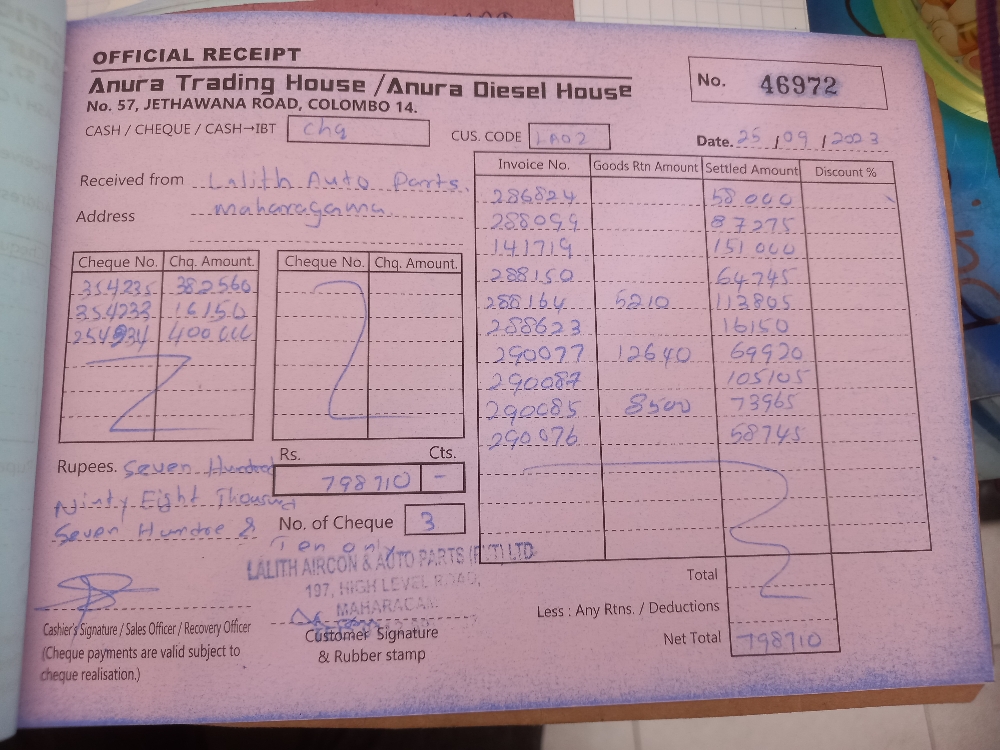 OFFICIAL RECEIPT
Anura Trading House / Anura Diesel House
No. 57, JETHAWANA ROAD, COLOMBO 14.
No. 46972
CASH / CHEQUE / CASH→IBT Chq
CUS. CODE LA02
Date. 25 / 09 / 2023
Received from Lalith Auto Parts.
Address maharagama
Cheque No. Chq. Amount.
354235 382560
354233 16150
254934 400000
Cheque No. Chq. Amount.
Invoice No. Goods Rtn Amount Settled Amount Discount %
286824 58000
288099 87275
141719 151000
288150 64745
288164 5210 113805
288623 16150
290077 12640 69920
290087 105105
290085 8500 73965
290076 58745
Rupees. Seven Hundred
Ninty Eight Thousand
Seven Hundre &
Ten only
Rs. Cts.
798710 -
No. of Cheque 3
LALITH AIRCON & AUTO PARTS (PVT) LTD
197, HIGH LEVEL ROAD,
Cashier's Signature / Sales Officer / Recovery Officer
(Cheque payments are valid subject to
cheque realisation.)
Customer Signature
& Rubber stamp
Total
Less : Any Rtns. / Deductions
Net Total 798710